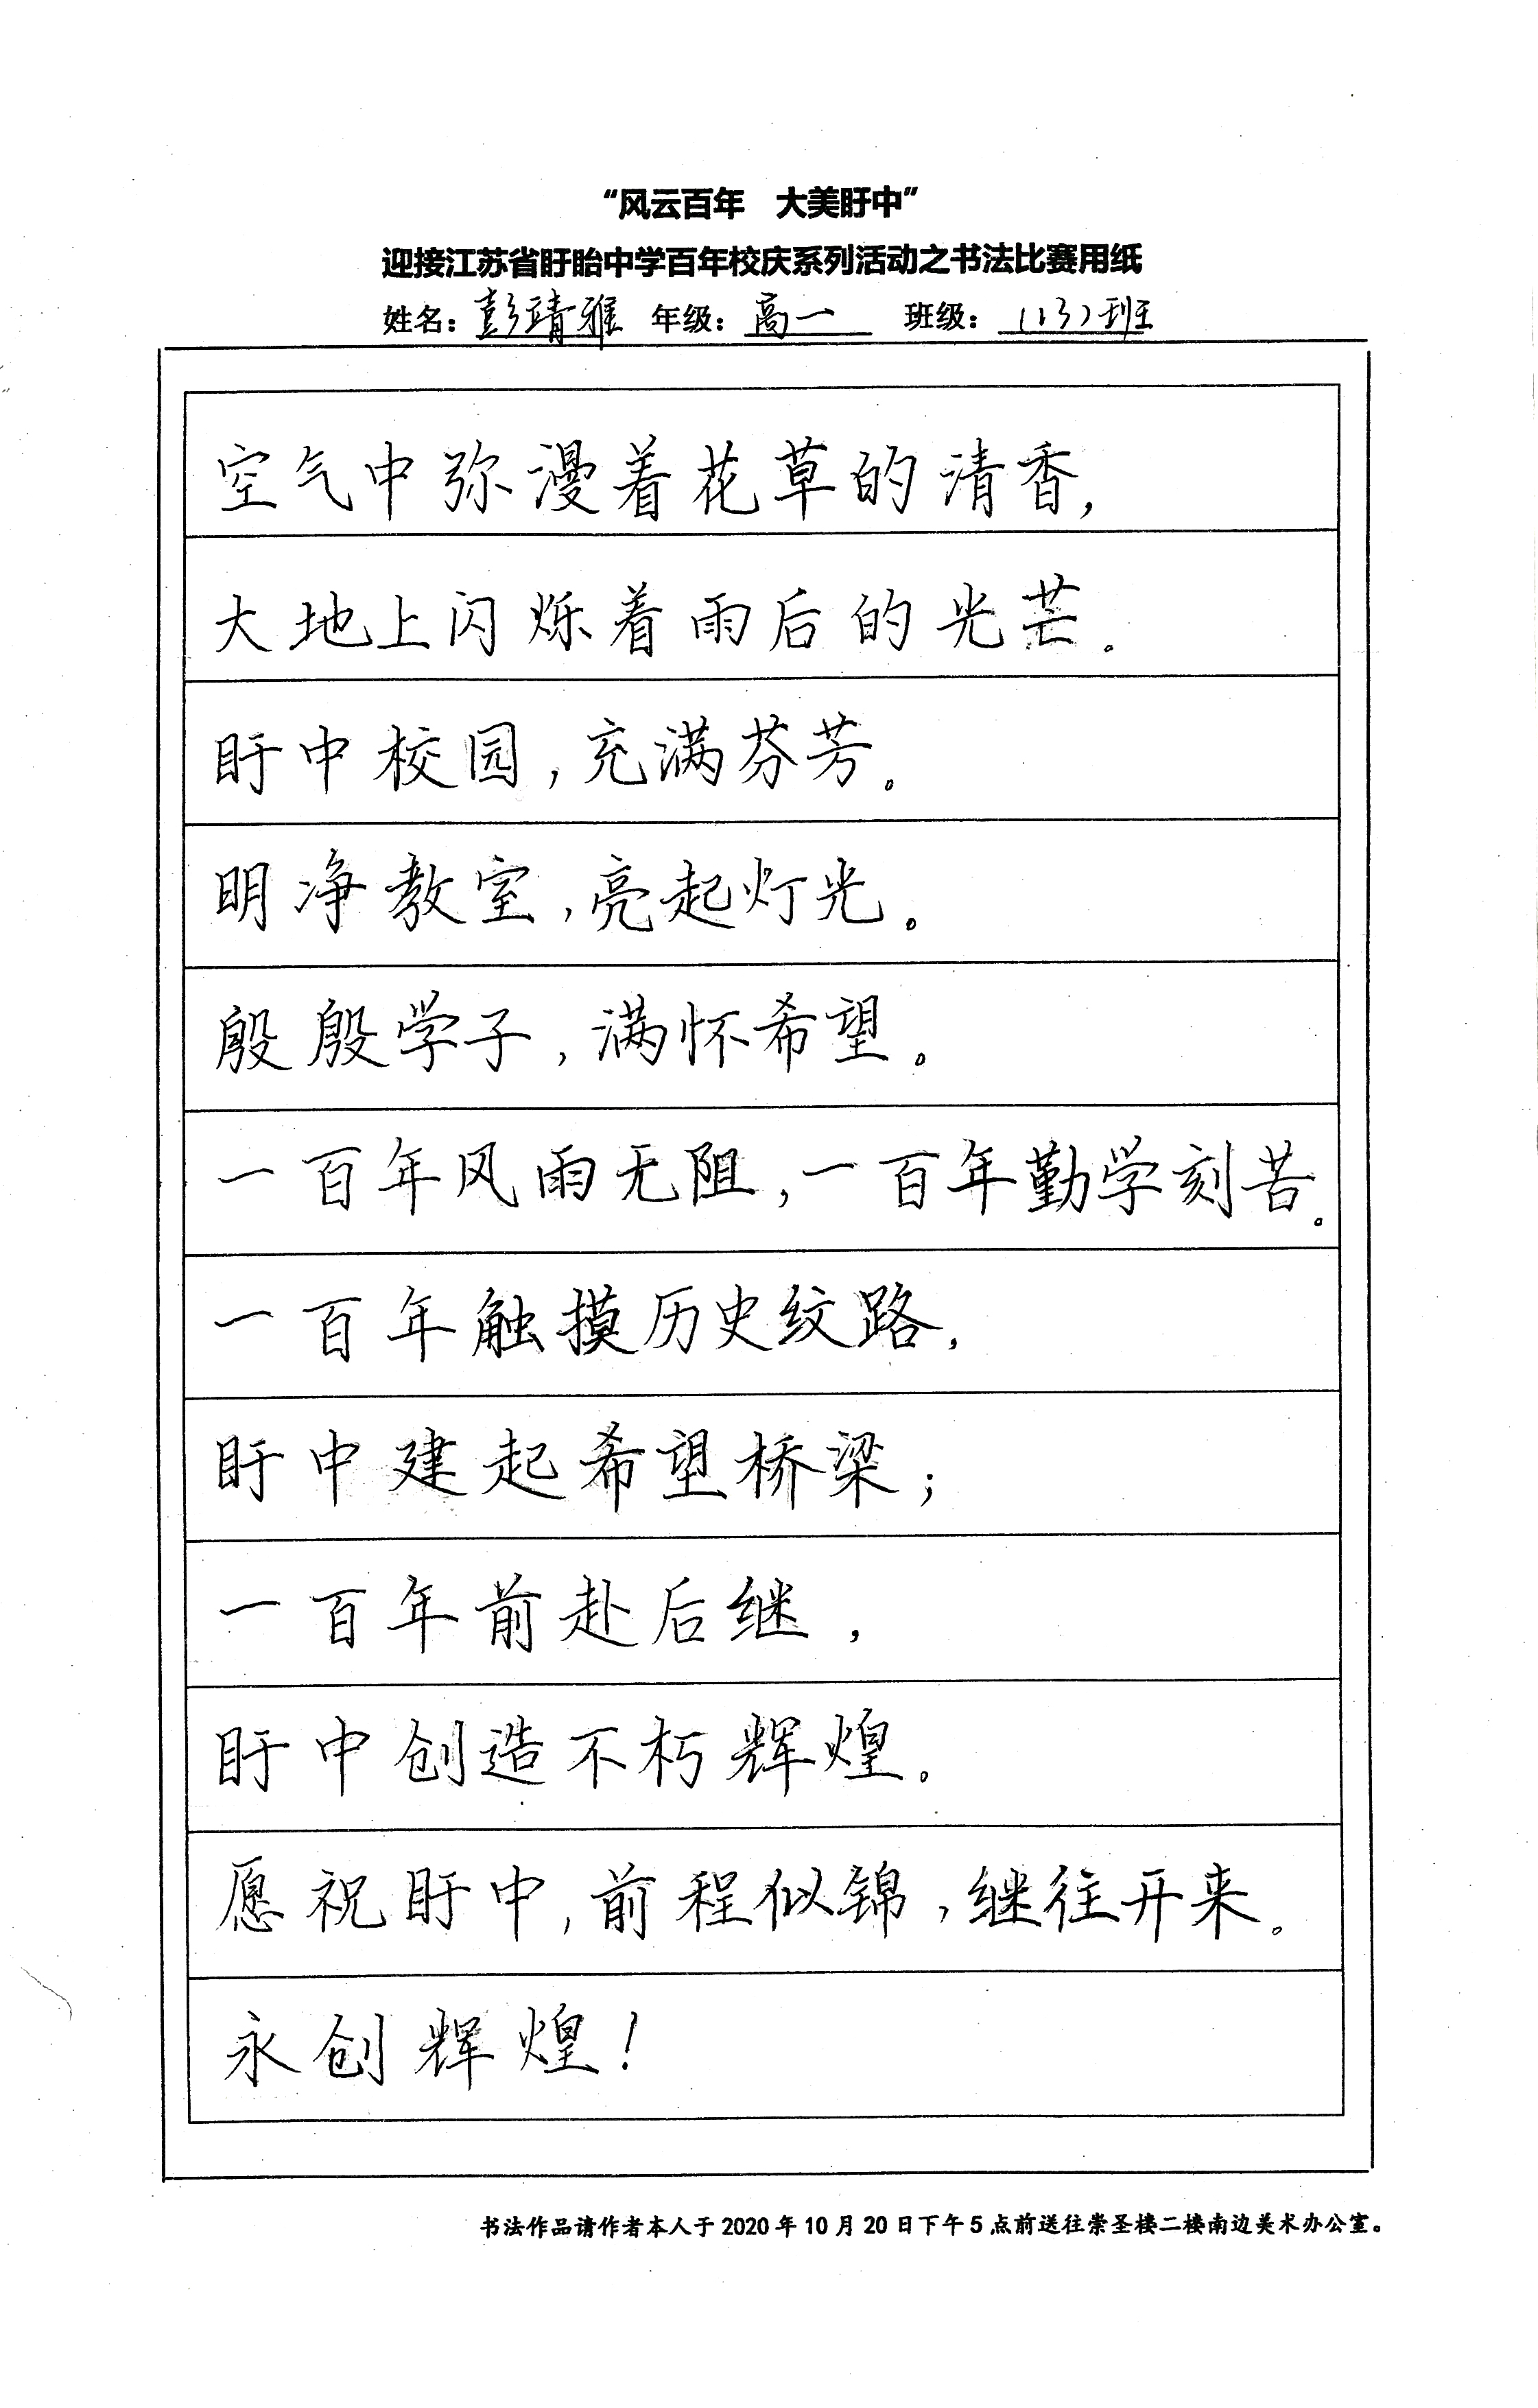 “风云百年 大美盱中”
迎接江苏省盱眙中学百年校庆系列活动之书法比赛用纸
姓名：彭靖雅 年级：高一 班级：（13）班
空气中弥漫着花草的清香，
大地上闪烁着雨后的光芒。
盱中校园，充满芬芳。
明净教室，亮起灯光。
殷殷学子，满怀希望。
一百年风雨无阻，一百年勤学刻苦。
一百年触摸历史纹路，
盱中建起希望桥梁；
一百年前赴后继，
盱中创造不朽辉煌。
愿祝盱中，前程似锦，继往开来。
永创辉煌！
书法作品请作者本人于2020年10月20日下午5点前送往崇圣楼二楼南边美术办公室。